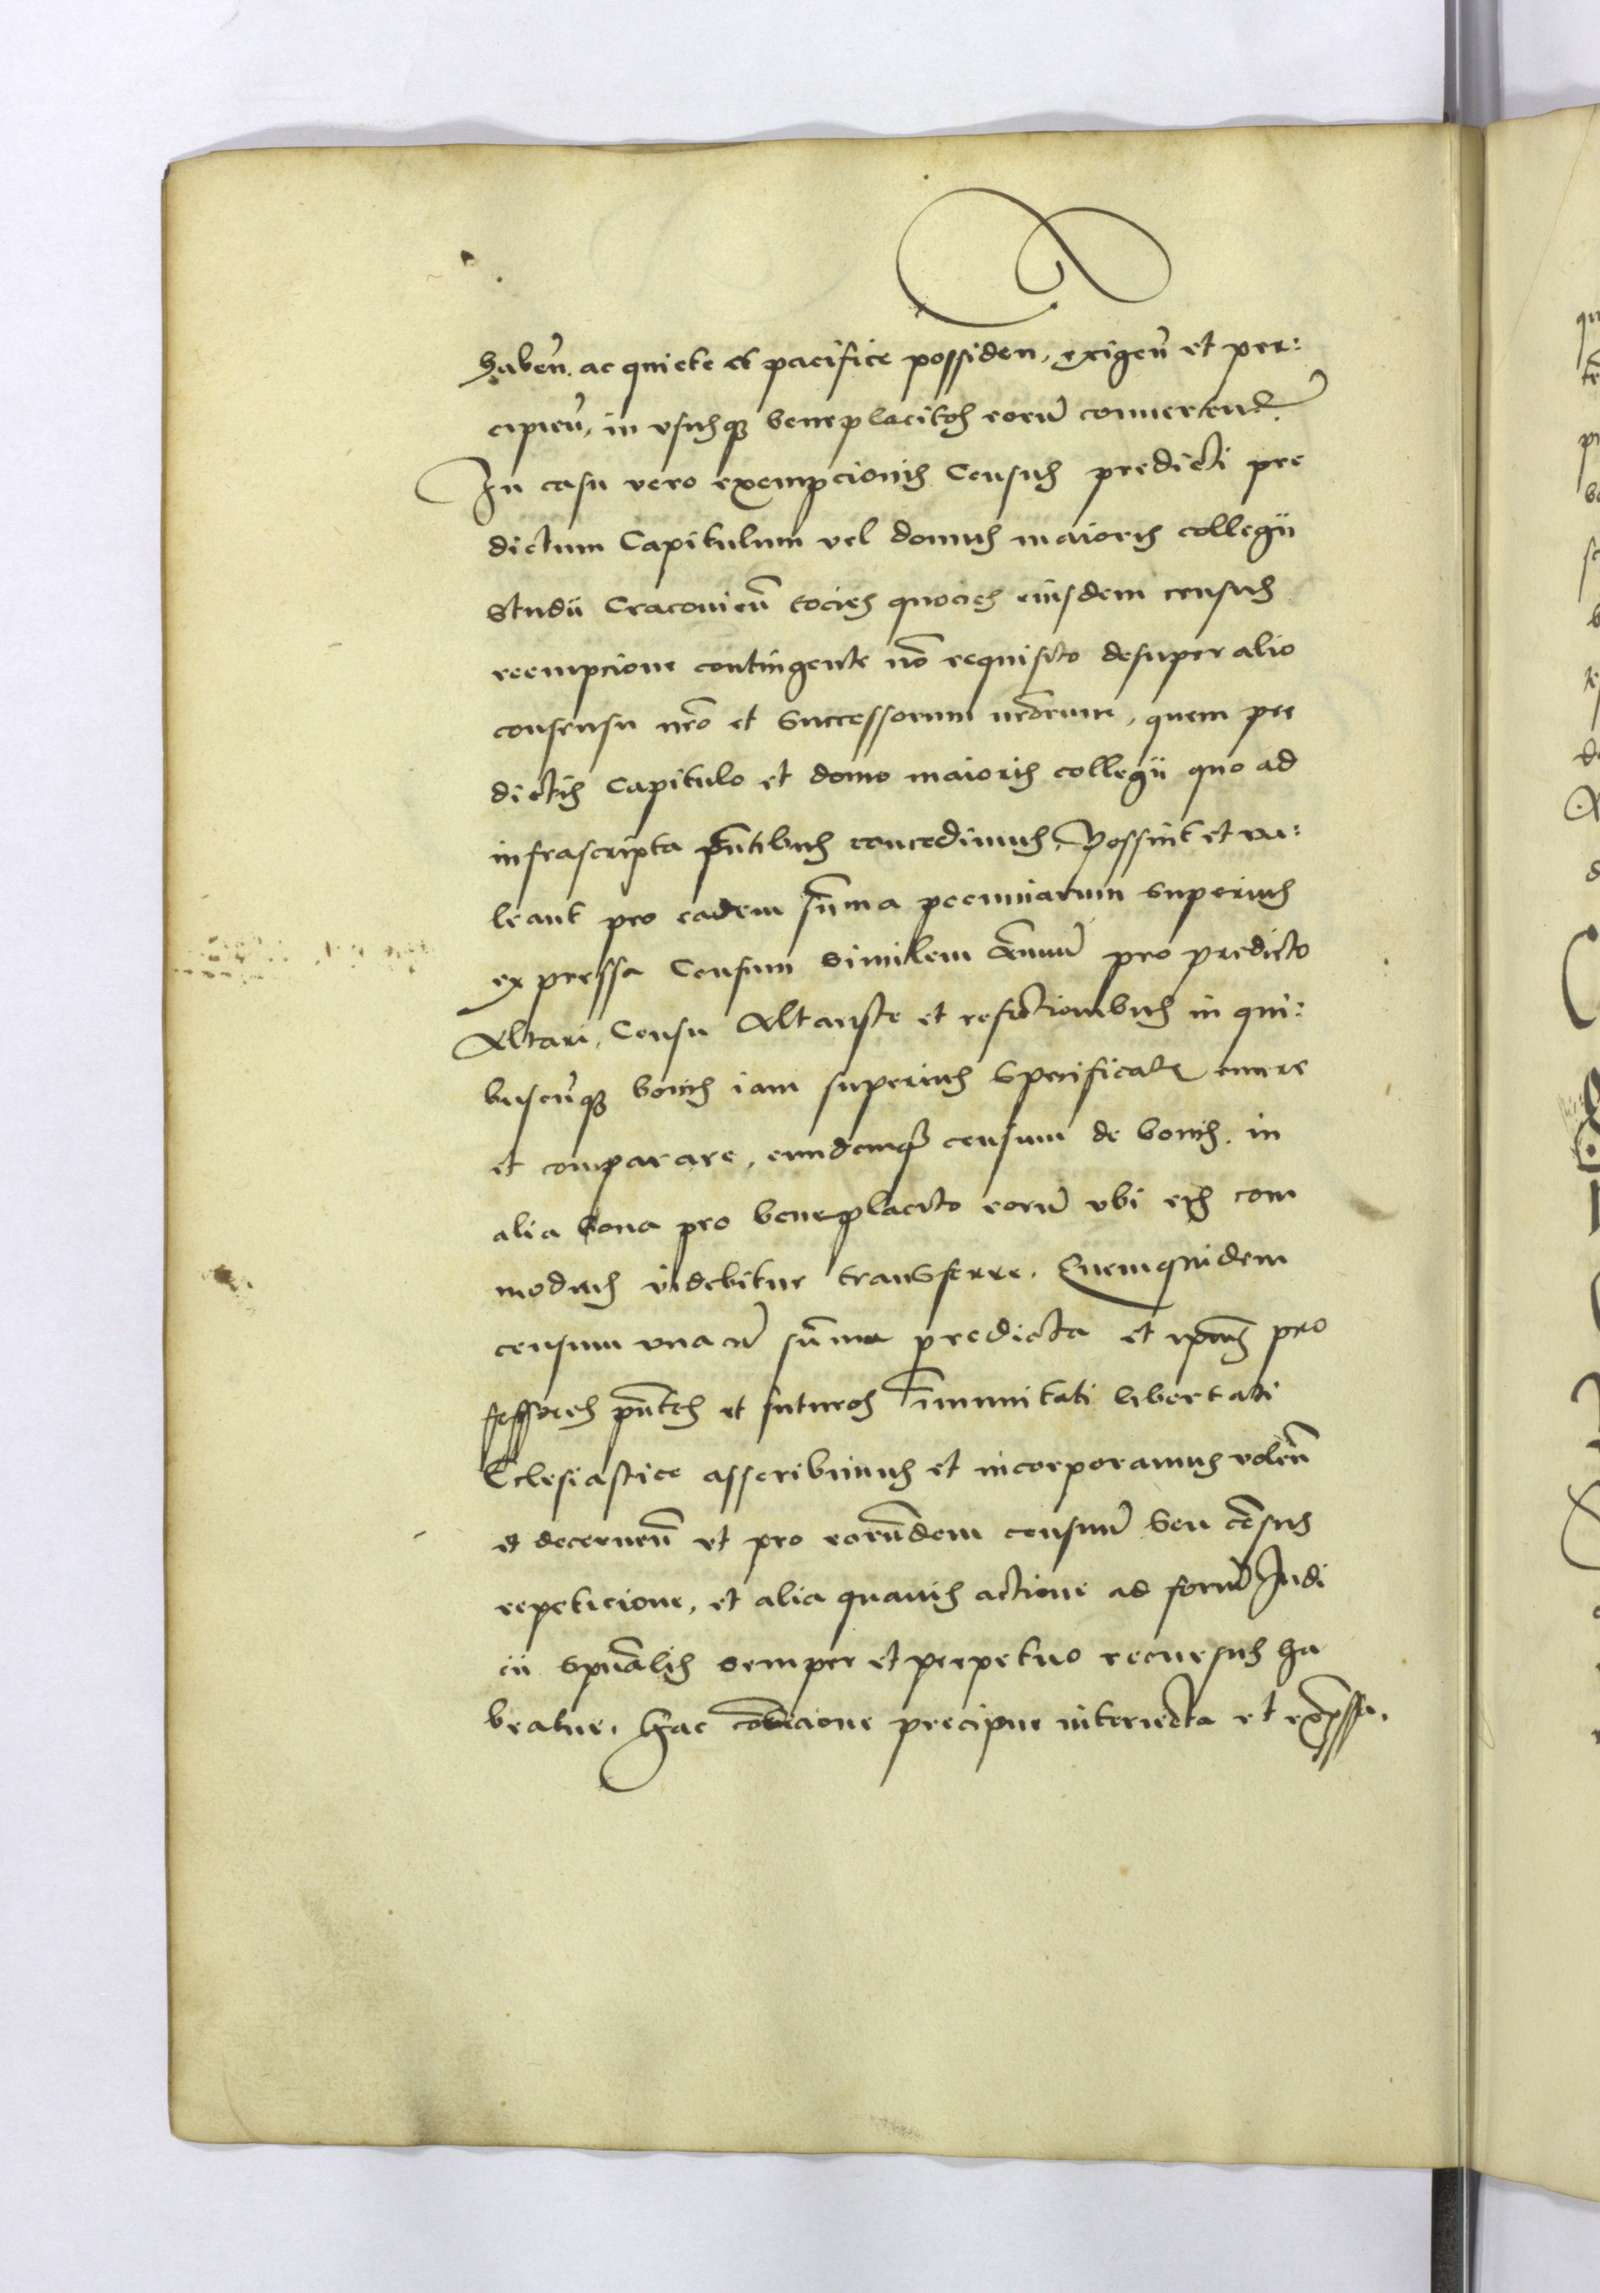 haben̄. ac quiete et pacifice possiden, exigen̄ et per:
cipien̄, in vsusq3 beneplacitos eorū conuertend̄.
In casu vero exempcionis Census predicti pre
dictum Capitulum vel domus maioris collegii
Studii Cracouien̄ tocies quocies eiusdem census
reempcione contingente nō requisito desuper alio
consensu nr̄o et Successorum nr̄orum, quem pre
dictis Capitulo et domo maioris collegii quo ad
infrascripta pn̄tibus concedimus, Possint et va:
leant pro eadem sum̄a pecuniarum superius
expressa Censum similem an̄uū pro predicto
Altari, Censu Altariste et refectionibus in qui:
buscūq3 bonis iam superius specificatis emere
et comparare, eundemq3 censum de bonis. in
alia bona pro beneplacito eorū vbi eis com
modius videbitur transferre. Quemquidem
censum vnacū sum̄a predicta et ip̄ius pro
fessores pn̄tes et futuros im̄unitati libertati
Eclesiastice asscribimus et incorporamus volen̄
et decernen̄ vt pro eorūdem censuū seu cēsus
repeticione, et alia quauis actione ad forū Iudi
cii sp̄ualis semper et perpetuo recursus ha
beatur. Hac cōdicione precipue interiecta et exp̄ssa.